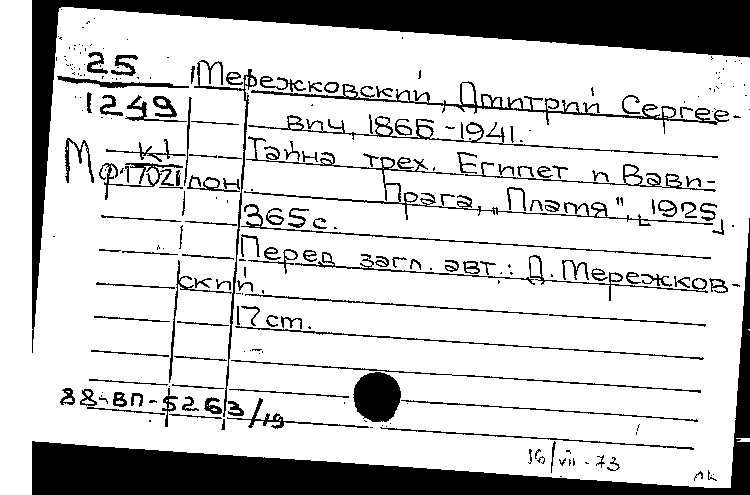 25
1249
Мережковский, Дмитрий Сергее-
вич, 1865-1941.
К1
Мф17021
Тайна трех. Египет и Вави-
лон.
Прага, „Пламя“, [1925].
365 с.
Перед загл. авт.: Д. Мережков-
ский.
17 cm.
88-ВП-5263/19
16/vii-73
ЛК